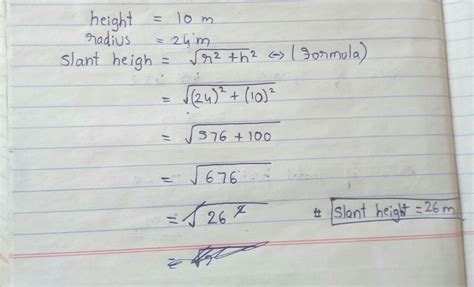 height = 10 m
radius = 24 m
Slant heigh = √r² + h² ⇔ (Formula)
= √(24)² + (10)²
= √576 + 100
= √676
= √26²
# Slant height = 26 m
=